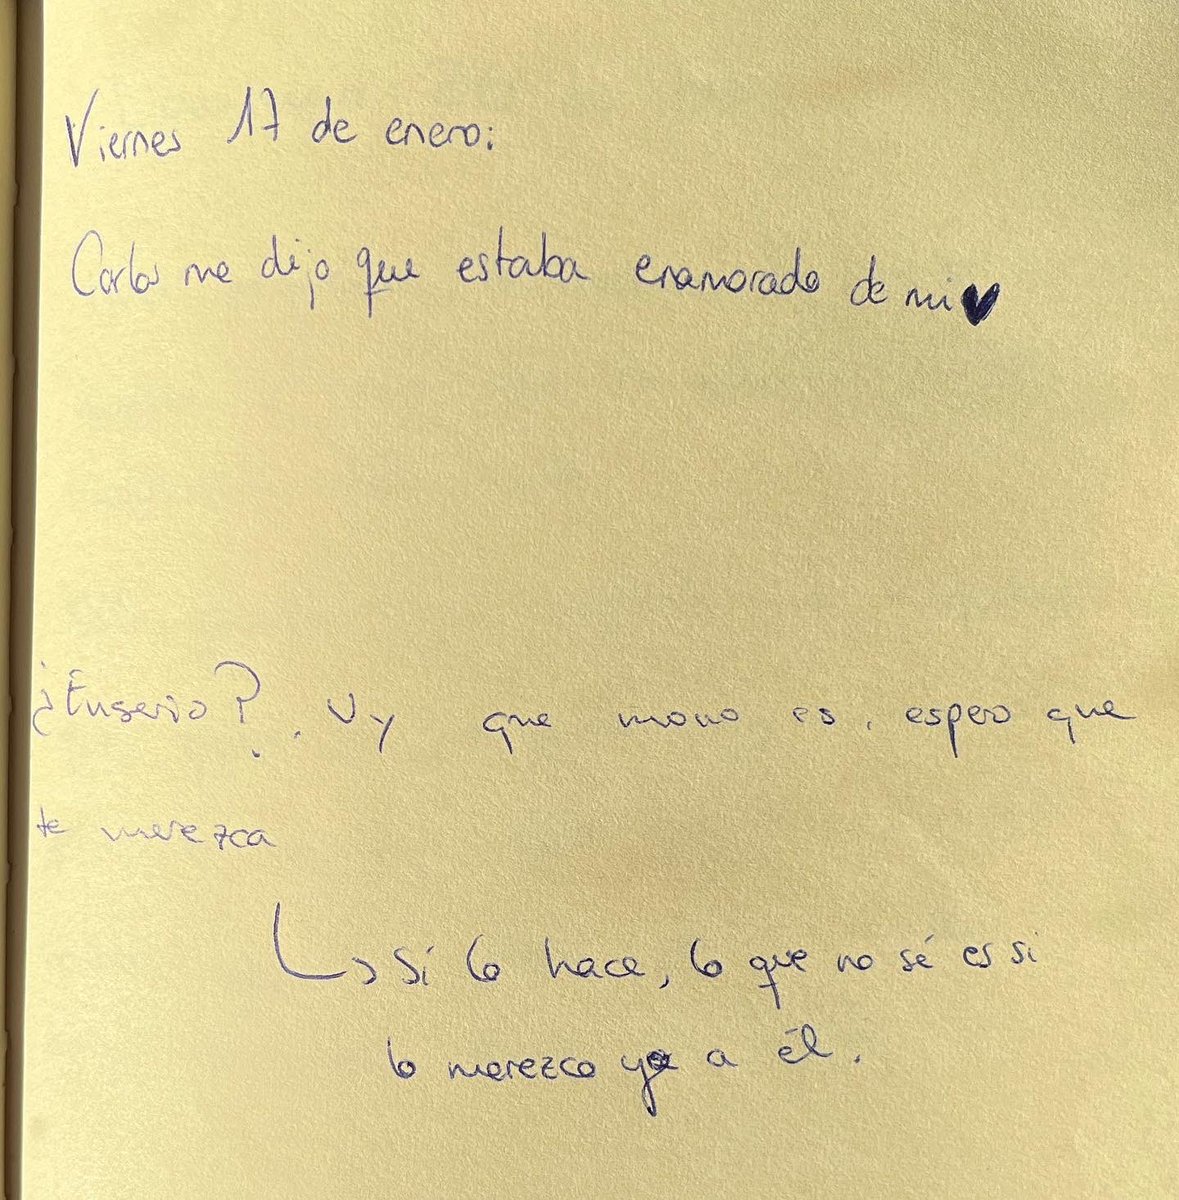 Viernes 17 de enero:
Carlos me dijo que estaba enamorado de mi♥
¿Enserio?. Uy que mono es, espero que
te merezca
↳ Sí lo hace, lo que no sé es si
lo merezco yo a él.